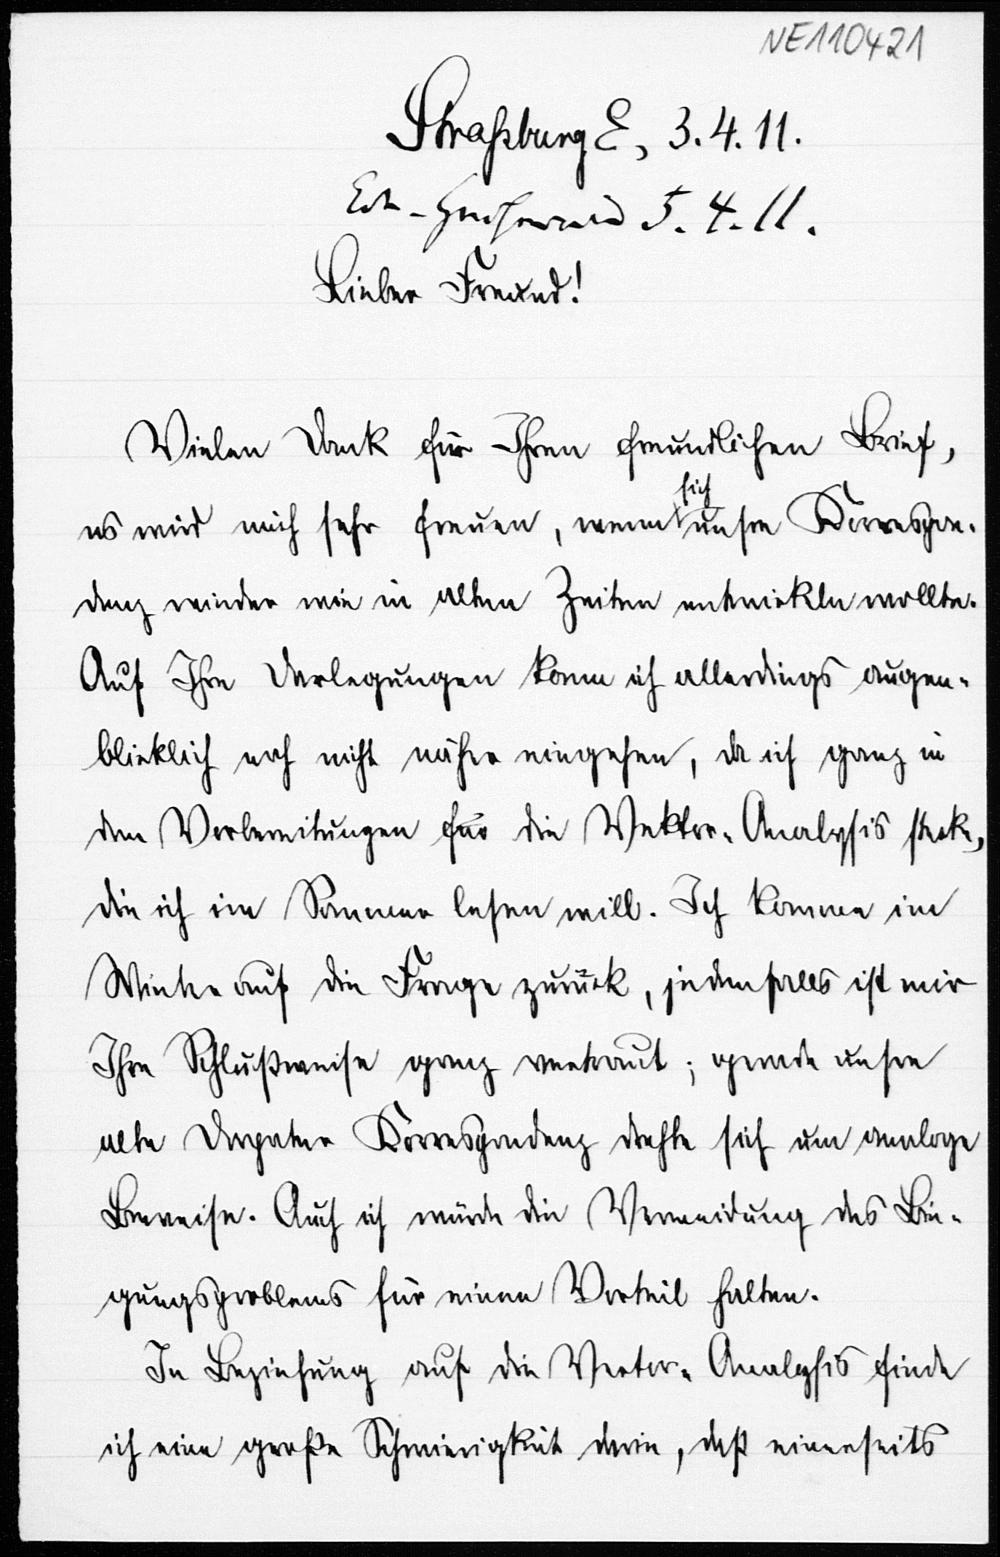 NE110421
Straßburg E, 3.4.11.
5.4.11.
Lieber Freund!
Vielen Dank für Ihren freundlichen Brief,
es wird mich sehr freuen, wenn sich unsre Korrespon-
denz wieder wie in alten Zeiten entwickeln wollte.
Auf Ihre Darlegungen kann ich allerdings augen-
blicklich noch nicht näher eingehen, da ich ganz in
den Vorbereitungen für die Vektor-Analysis stecke,
die ich im Sommer lesen will. Ich komme im
Winter auf die Frage zurück, jedenfalls ist mir
Ihre Schlußweise ganz vertraut; gerade unsre
alte Dorpater Korrespondenz drehte sich um analoge
Beweise. Auch ich würde die Vermeidung des Bie-
gungsproblems für einen Vorteil halten.
In Beziehung auf die Vector-Analysis finde
ich eine große Schwierigkeit darin, daß einerseits